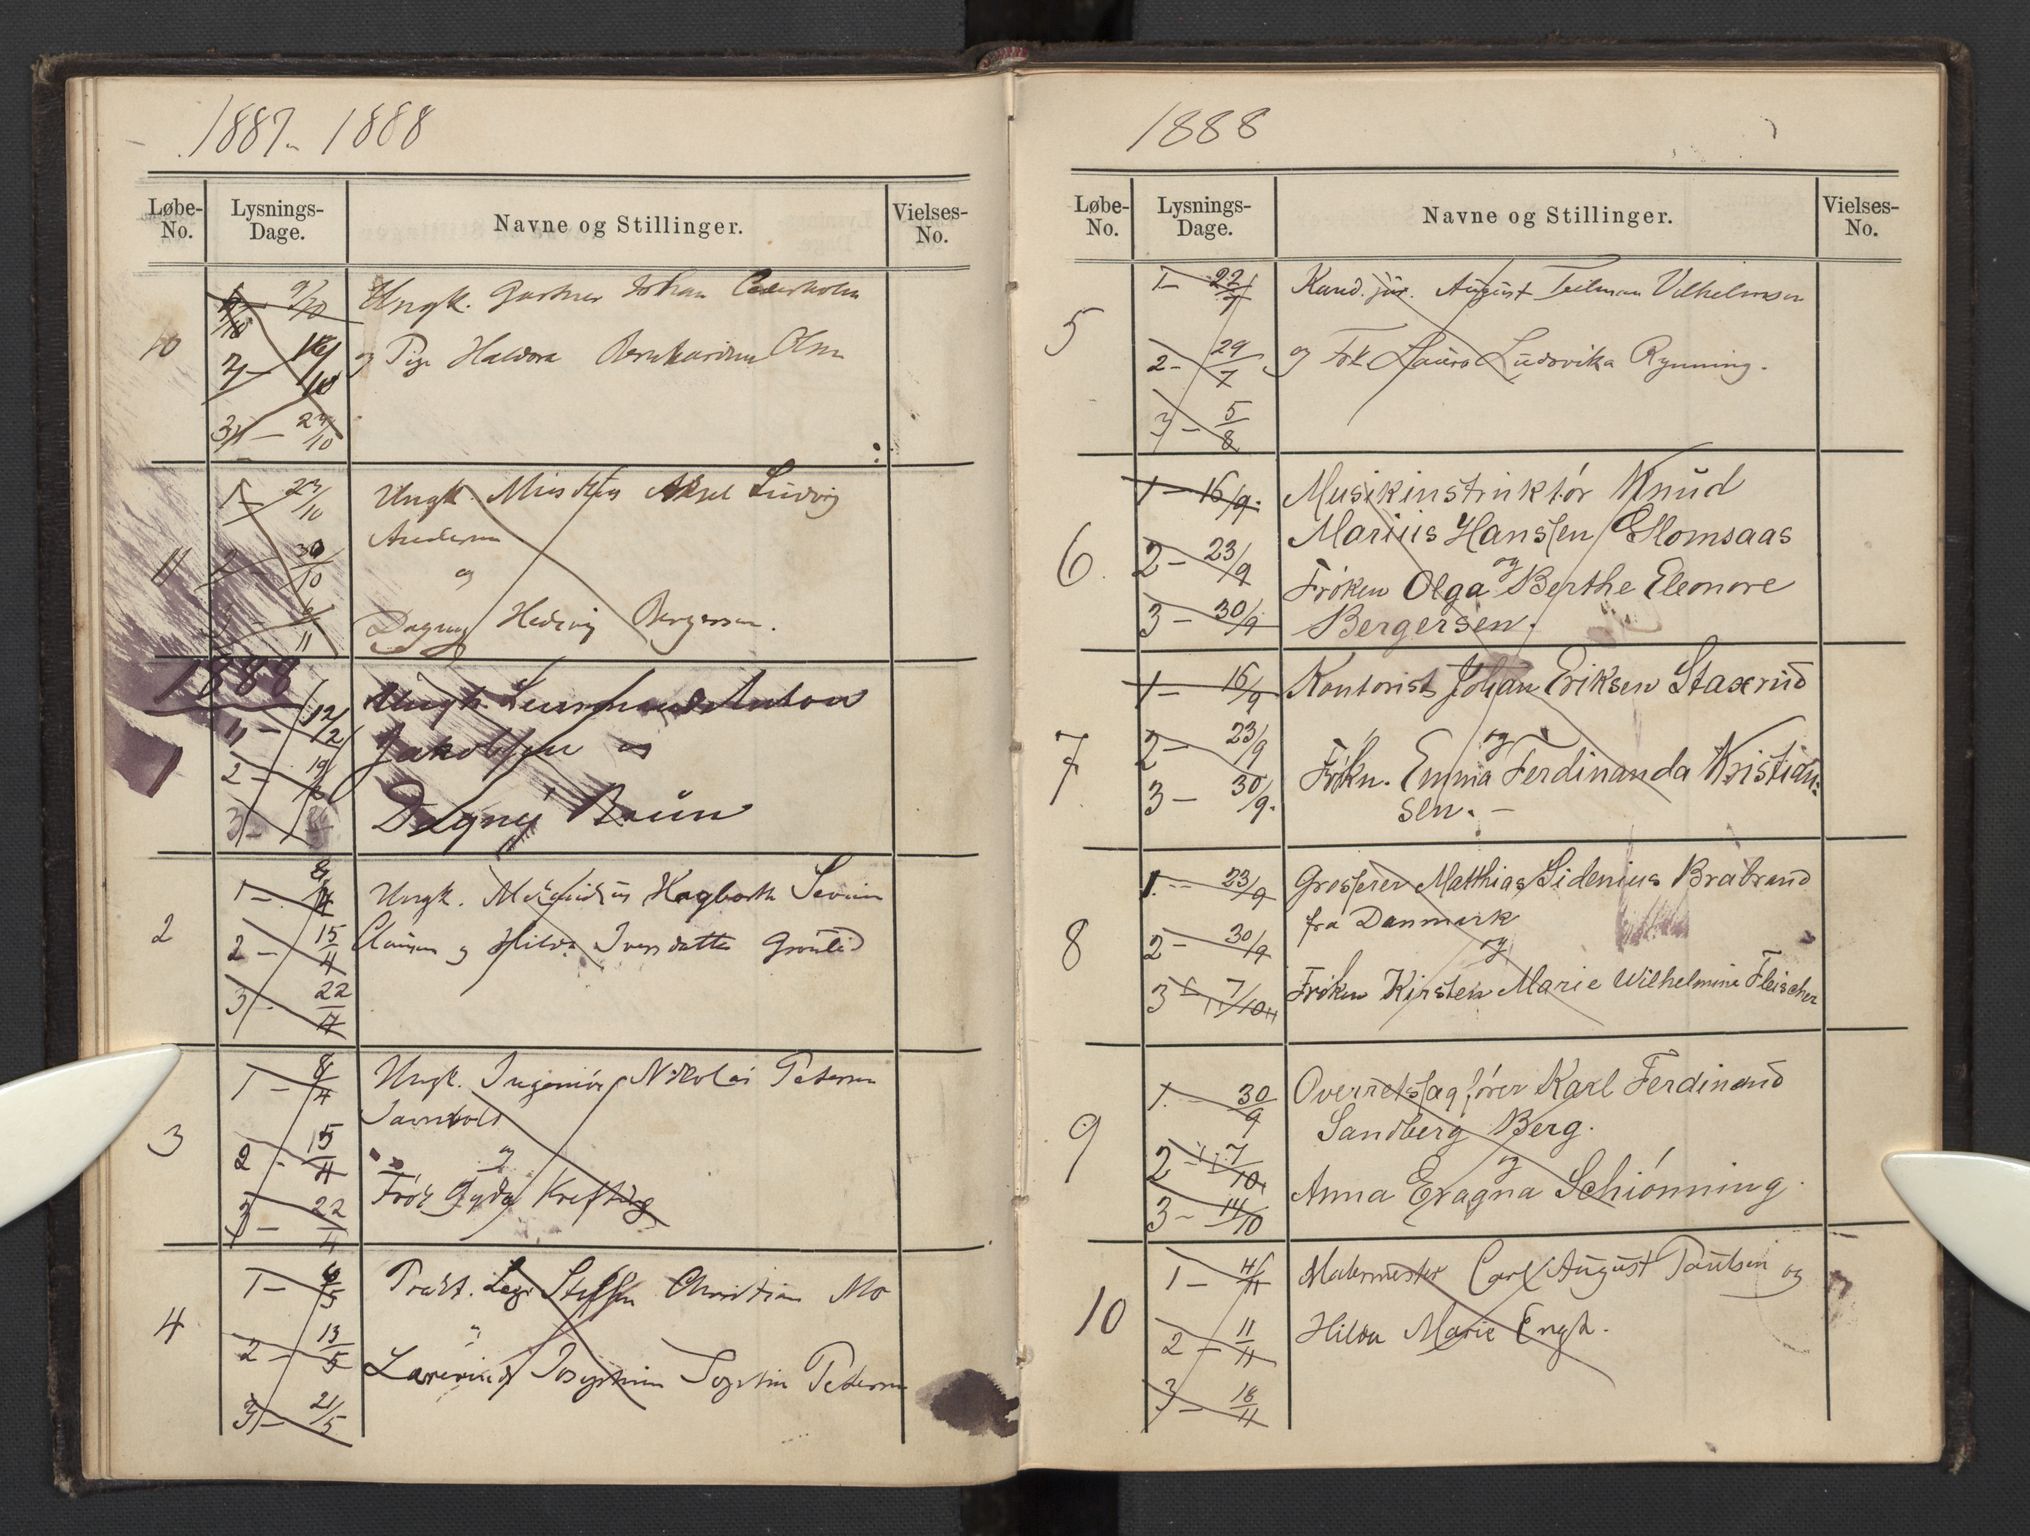 1887-1888
Løbe-No. Lysnings-Dage. Navne og Stillinger. Vielses-No.
10
2/10 9/10 Ungk. Gartner Johan Cederholm
2 - 16/10 og Pige Haldora Bernhardine Olsen
3 - 23/10
11
1 - 23/10 Ungk. Aksel Ludvig
Andersen
2 - 30/10 og
3 - 6/11 Dagny Hedevig Bergersen.
1888
1 - 12/2 Ungk. Anton
Jakobsen og
2 - 19/2
3 - Dagny Bruun
2
1 - 8/4 Ungk. Hagbarth Severin
2 - 15/4 Clausen og Hilda Iversdatter Grønlid
3 - 22/4
3
1 - 8/4 Ungk. Ingeniør Nikolai Petersen
2 - 15/4 og
3 - 22/4 Frøk Gyda Krefting
4
1 - 6/5 Prakt. Læge Steffen Christian Mo
2 - 13/5 "
Josephine Sophie Petersen
3 - 21/5
1888
Løbe-No. Lysnings-Dage. Navne og Stillinger. Vielses-No.
5
1 - 22/7 Kand. jur. August Teilman Vilhelmsen
2 - 29/7 og Frk Laura Ludovika Rynning.
3 - 5/8
6
1 - 16/9. Musikinstruktør Knud
Marius Hanssen Glomsaas
2 - 23/9 og
Frøken Olga Berthe Eleonore
3 - 30/9 Bergersen.
7
1 - 16/9 Kontorist Johan Eriksen Staxrud
2 - 23/9 og
3 - 30/9. Frøkn. Emma Ferdinanda Kristian-
sen. -
8
1. - 23/9 Grosserer Matthias Sidenius Brabrand
fra Danmark
2 - 30/9 og
3 - 7/10 Frøken Kirsten Marie Wilhelmine Fleischer
9
1. - 30/9 Overretssagfører Karl Ferdinand
Sandberg Berg.
2 - 7/10 og
3 - 14/10 Anna Eragna Schiønning.
10
1 - 4/11 Malermester Carl August Paulsen og
2 - 11/11 Hilda Marie Engh.
3 - 18/11